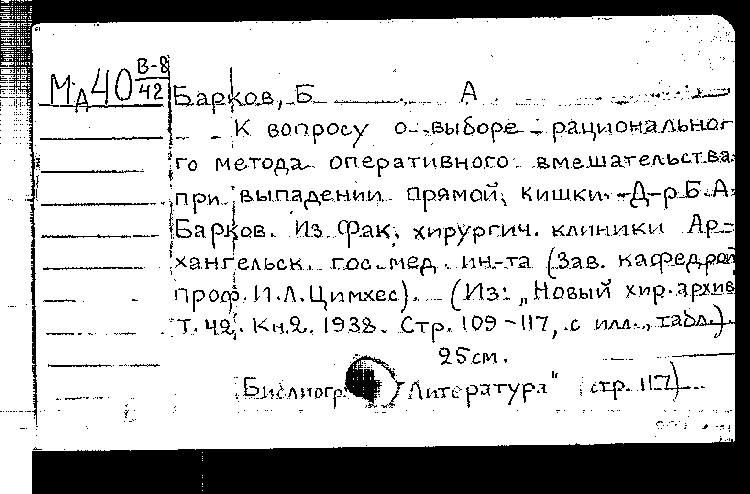 МдА40 В-8
42
Барков, Б А
К вопросу о выборе рационально-
го метода оперативного вмешательства
при выпадении прямой кишки. Д-р Б.А.
Барков. Из Фак. хирургич. клиники Ар-
хангельск. гос. мед. ин-та (Зав. кафедрой
проф. И.Л. Цимхес). (Из: „Новый хир. архив
Т. 42. Кн. 2. 1938. Стр. 109-117, с илл., табл.).
25см.
Библиогр. „Литература" (стр. 117)